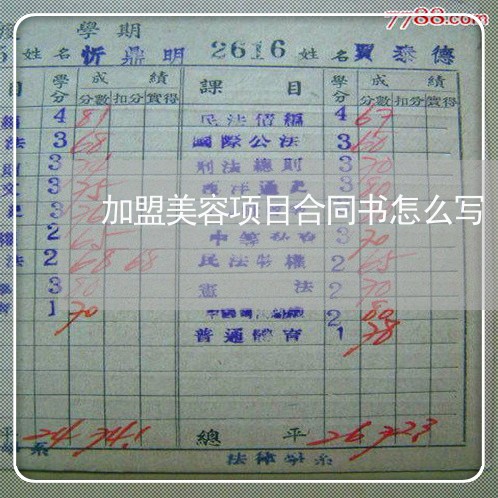 7788.com
學期
姓名 忻鼎明 2616 姓名 賈泰德
目 學分 成績 課目 學分 成績
分數 扣分 實得 分數 扣分 實得
4 81 民法債編 4 67
法 3 68 國際公法 3 60
3 刑法總則 3 70
文 3 75 西洋通史 3 80
加盟美容项目合同书怎么写
權 2 65 3 70
法 2 68 68 民法物權 2 65
3 80 憲法 2 70
1 70 2 80
普通體育 1 78
平 24 74.1 總平 26 72.3
系 法律學系